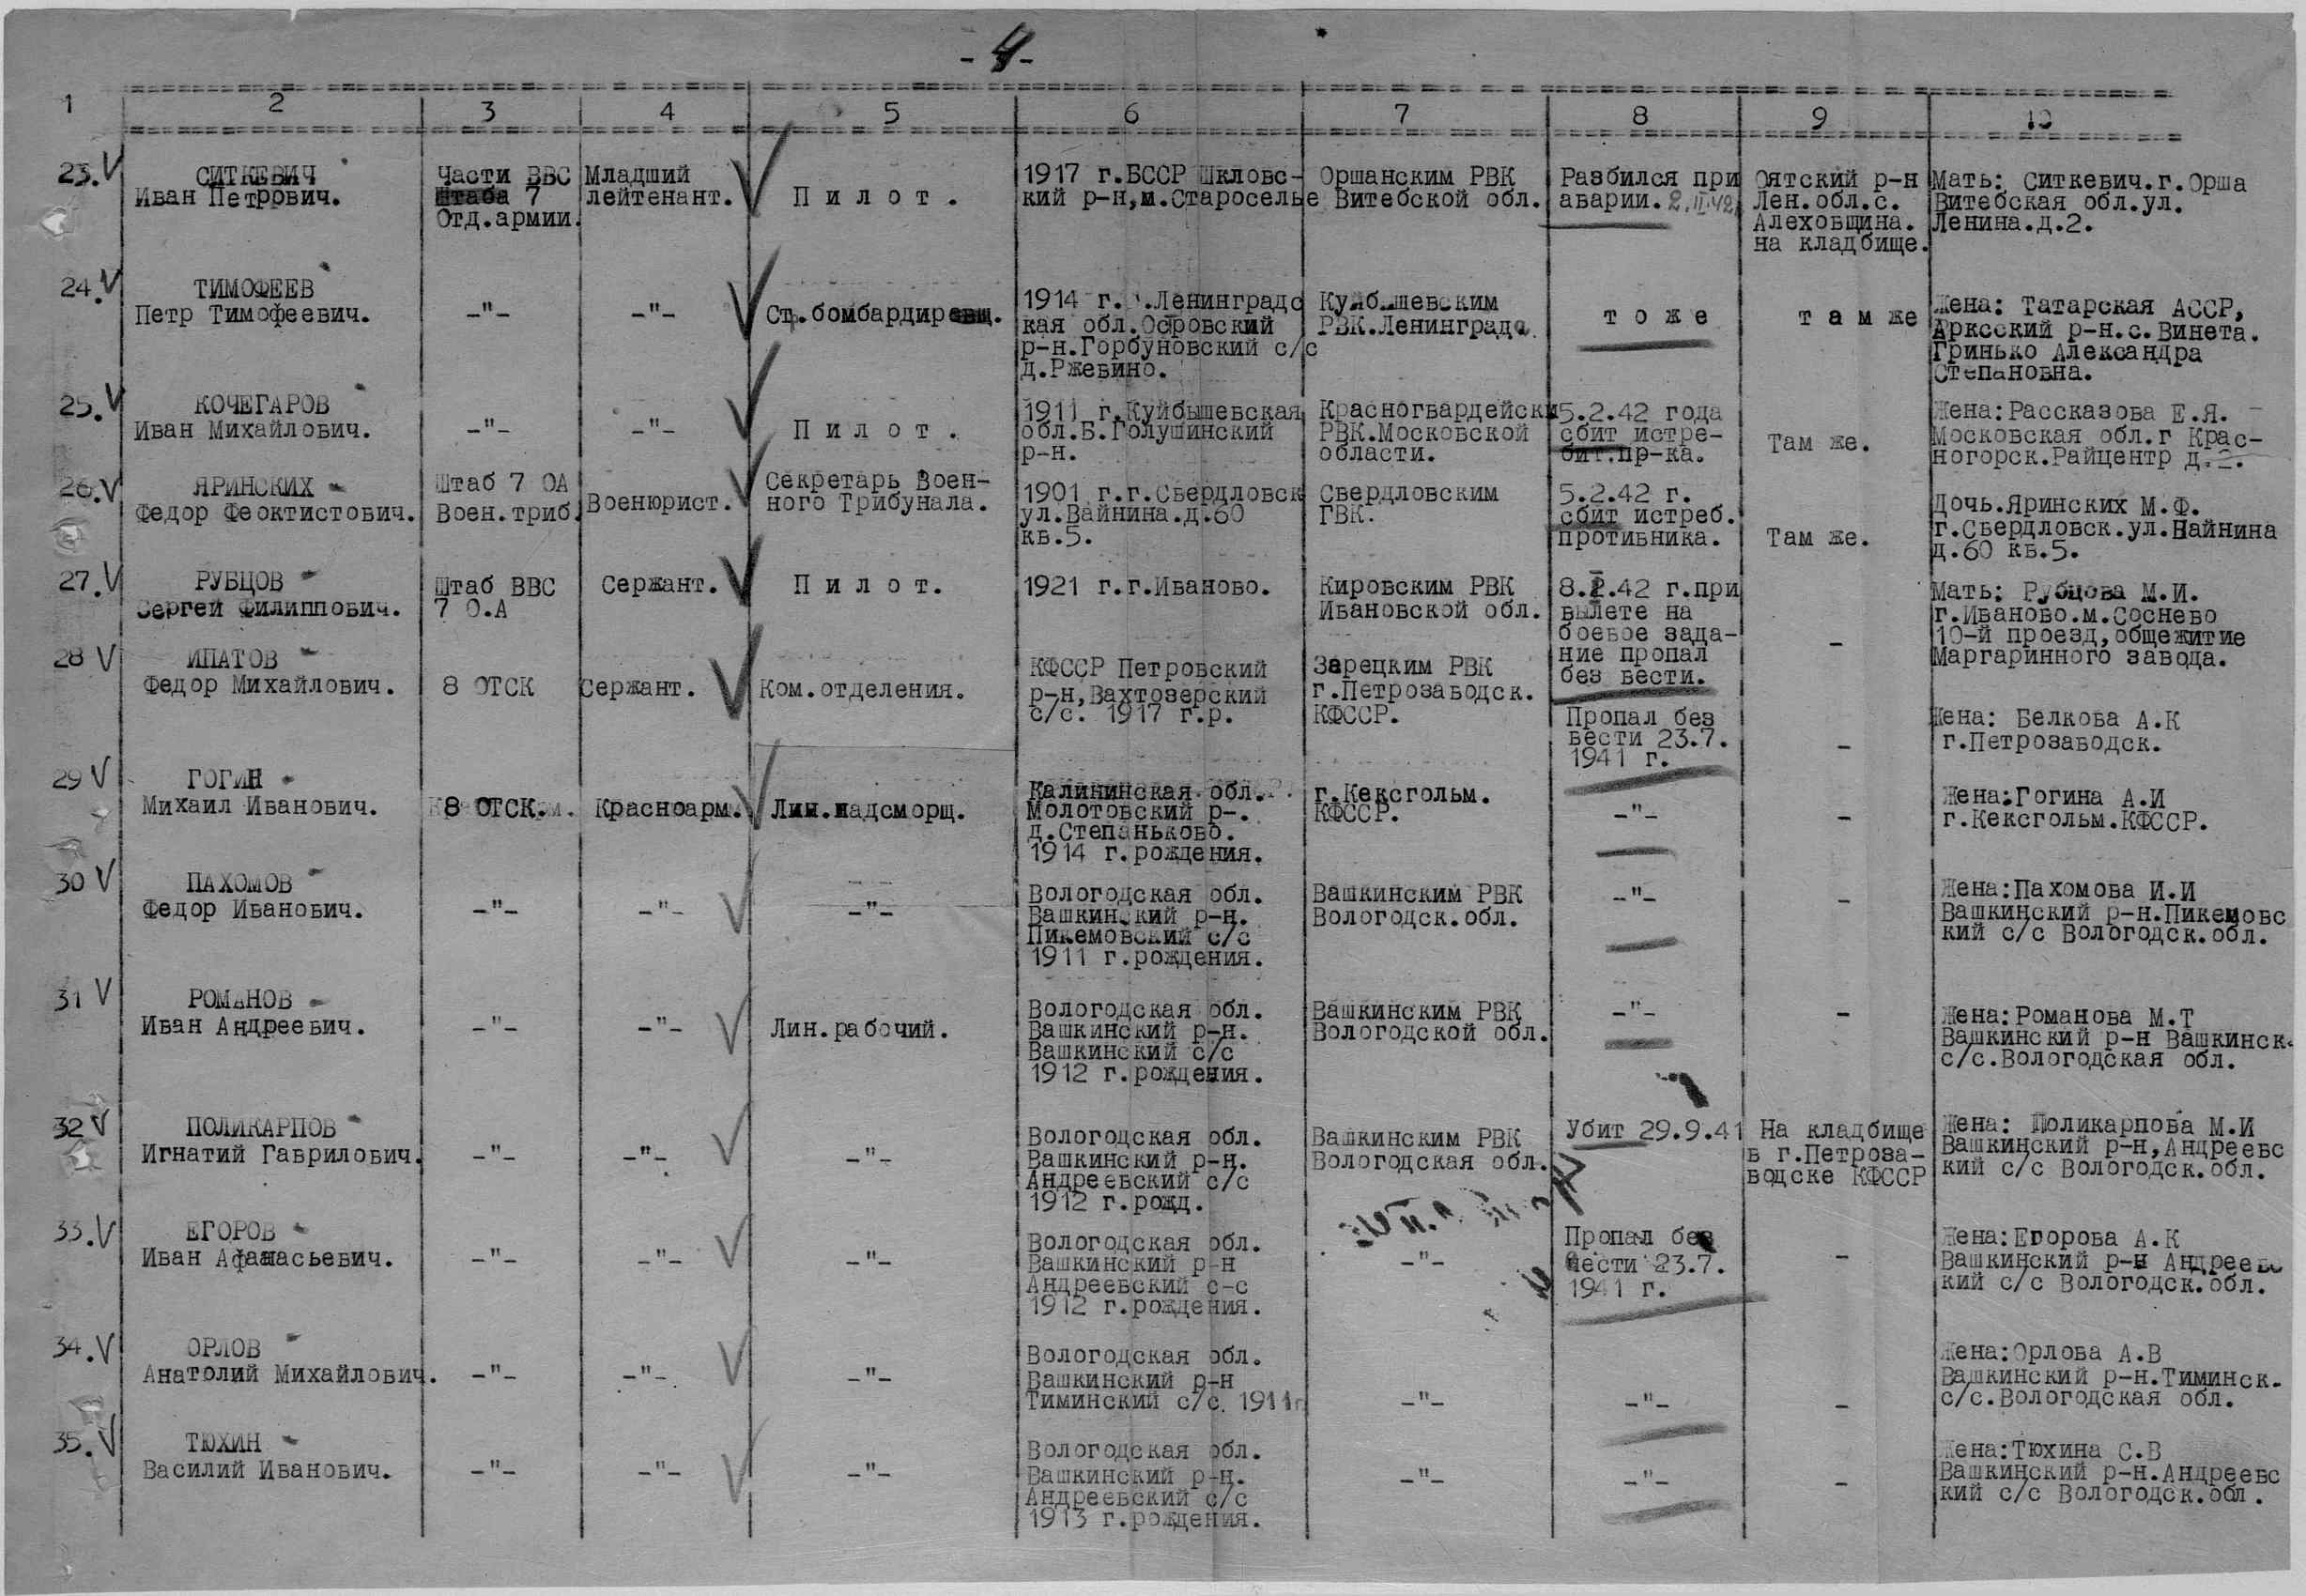 - 4 -
1 2 3 4 5 6 7 8 9 10
23. V
СИТКЕВИЧ
Иван Петрович.
Части ВВС
Штаба 7
Отд.армии.
Младший
лейтенант.
П и л о т .
1917 г.БССР Шкловс-
кий р-н,м.Староселье
Оршанским РВК
Витебской обл.
Разбился при
аварии. 2.II.42
Оятский р-н
Лен.обл.с.
Алеховщина.
на кладбище.
Мать: Ситкевич.г.Орша
Витебская обл.ул.
Ленина.д.2.
24. V
ТИМОФЕЕВ
Петр Тимофеевич.
-"-
-"-
Ст.бомбардир
1914 г. .Ленинградс
кая обл.Островский
р-н.Горбуновский с/с
д.Ржевино.
Куйбышевским
РВК.Ленинграда.
т о ж е
т а м же
Жена: Татарская АССР,
Арксский р-н.с.Винета.
Гринько Александра
Степановна.
25. V
КОЧЕГАРОВ
Иван Михайлович.
-"-
-"-
П и л о т .
1911 г.Куйбышевская
обл.Б.Голушинский
р-н.
Красногвардейски
РВК.Московской
области.
5.2.42 года
сбит истре-
бит.пр-ка.
Там же.
Жена:Рассказова Е.Я.
Московская обл.г Крас-
ногорск.Райцентр д.
26. V
ЯРИНСКИХ
Федор Феоктистович.
Штаб 7 ОА
Воен.триб.
Военюрист.
Секретарь Воен-
ного Трибунала.
1901 г.г.Свердловск
ул.Вайнина.д.60
кв.5.
Свердловским
ГВК.
5.2.42 г.
сбит истреб.
противника.
Там же.
Дочь.Яринских М.Ф.
г.Свердловск.ул.Вайнина
д.60 кв.5.
27. V
РУБЦОВ
Сергей Филиппович.
Штаб ВВС
7 О.А
Сержант.
П и л о т.
1921 г.г.Иваново.
Кировским РВК
Ивановской обл.
8.2.42 г.при
вылете на
боевое зада-
ние пропал
без вести.
-
Мать: Рубцова М.И.
г.Иваново.м.Соснево
10-й проезд,общежитие
Маргаринного завода.
28 V
ИПАТОВ
Федор Михайлович.
8 ОТСК
Сержант.
Ком.отделения.
КФССР Петровский
р-н,Вахтозерский
с/с. 1917 г.р.
Зарецким РВК
г.Петрозаводск.
КФССР.
Пропал без
вести 23.7.
1941 г.
-
Жена: Белкова А.К
г.Петрозаводск.
29 V
ГОГИН
Михаил Иванович.
8 ОТСК.
Красноарм.
Лин.надсморщ.
Калининская обл.
Молотовский р-.
д.Степаньково.
1914 г.рождения.
г.Кексгольм.
КФССР.
-"-
-
Жена:Гогина А.И
г.Кексгольм.КФССР.
30 V
ПАХОМОВ
Федор Иванович.
-"-
-"-
-"-
Вологодская обл.
Вашкинский р-н.
Пикемовский с/с
1911 г.рождения.
Вашкинским РВК
Вологодск.обл.
-"-
-
Жена:Пахомова И.И
Вашкинский р-н.Пикемовс
кий с/с Вологодск.обл.
31 V
РОМАНОВ
Иван Андреевич.
-"-
-"-
Лин.рабочий.
Вологодская обл.
Вашкинский р-н.
Вашкинский с/с
1912 г.рождения.
Вашкинским РВК
Вологодской обл.
-"-
-
Жена:Романова М.Т
Вашкинский р-н Вашкинск.
с/с.Вологодская обл.
32 V
ПОЛИКАРПОВ
Игнатий Гаврилович.
-"-
-"-
-"-
Вологодская обл.
Вашкинский р-н.
Андреевский с/с
1912 г.рожд.
Вашкинским РВК
Вологодская обл.
Убит 29.9.41
На кладбище
в г.Петроза-
водске КФССР
Жена: Поликарпова М.И
Вашкинский р-н,Андреевс
кий с/с Вологодск.обл.
33. V
ЕГОРОВ
Иван Афанасьевич.
-"-
-"-
-"-
Вологодская обл.
Вашкинский р-н
Андреевский с-с
1912 г.рождения.
-"-
Пропал без
вести 23.7.
1941 г.
-
Жена:Егорова А.К
Вашкинский р-н Андреевс
кий с/с Вологодск.обл.
34. V
ОРЛОВ
Анатолий Михайлович.
-"-
-"-
-"-
Вологодская обл.
Вашкинский р-н
Тиминский с/с. 1911г
-"-
-"-
-
Жена:Орлова А.В
Вашкинский р-н.Тиминск.
с/с.Вологодская обл.
35. V
ТЮХИН
Василий Иванович.
-"-
-"-
-"-
Вологодская обл.
Вашкинский р-н.
Андреевский с/с
1913 г.рождения.
-"-
-"-
-
Жена:Тюхина С.В
Вашкинский р-н.Андреевс
кий с/с Вологодск.обл.